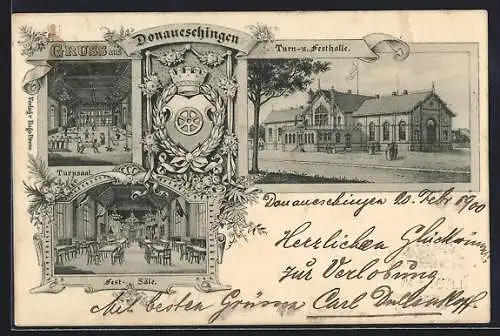 Gruss aus
Donaueschingen
Turn- u. Festhalle.
Turnsaal.
Fest-Säle.
Donaueschingen 20. Febr 1900
Herzlichen Glückwunsch
zur Verlobung.
Mit besten Grüssen Carl